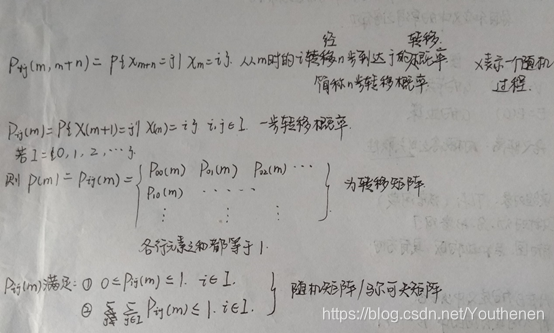 经 转移
P_{ij}(m, m+n) = P{X_{m+n}=j | X_m=i}. 从m时的i转移n步到达j的概率 X表示一个随机
简称n步转移概率 过程.
P_{ij}(m)=P{X(m+1)=j | X(m)=i} i,j∈I. 一步转移概率.
若I={0, 1, 2, ⋯}.
则 P(m) = P_{ij}(m) = { P_{00}(m) P_{01}(m) P_{02}(m) ⋯
P_{10}(m) ⋯ ⋯ } 为转移矩阵.
⋮ ⋮ ⋮
各行元素之和都等于1.
P_{ij}(m)满足: ① 0≤P_{ij}(m)≤1. i∈I.
② Σ_{j∈I} P_{ij}(m)≤1. i∈I. } 随机矩阵/马尔可夫矩阵
https://blog.csdn.net/Youthenen